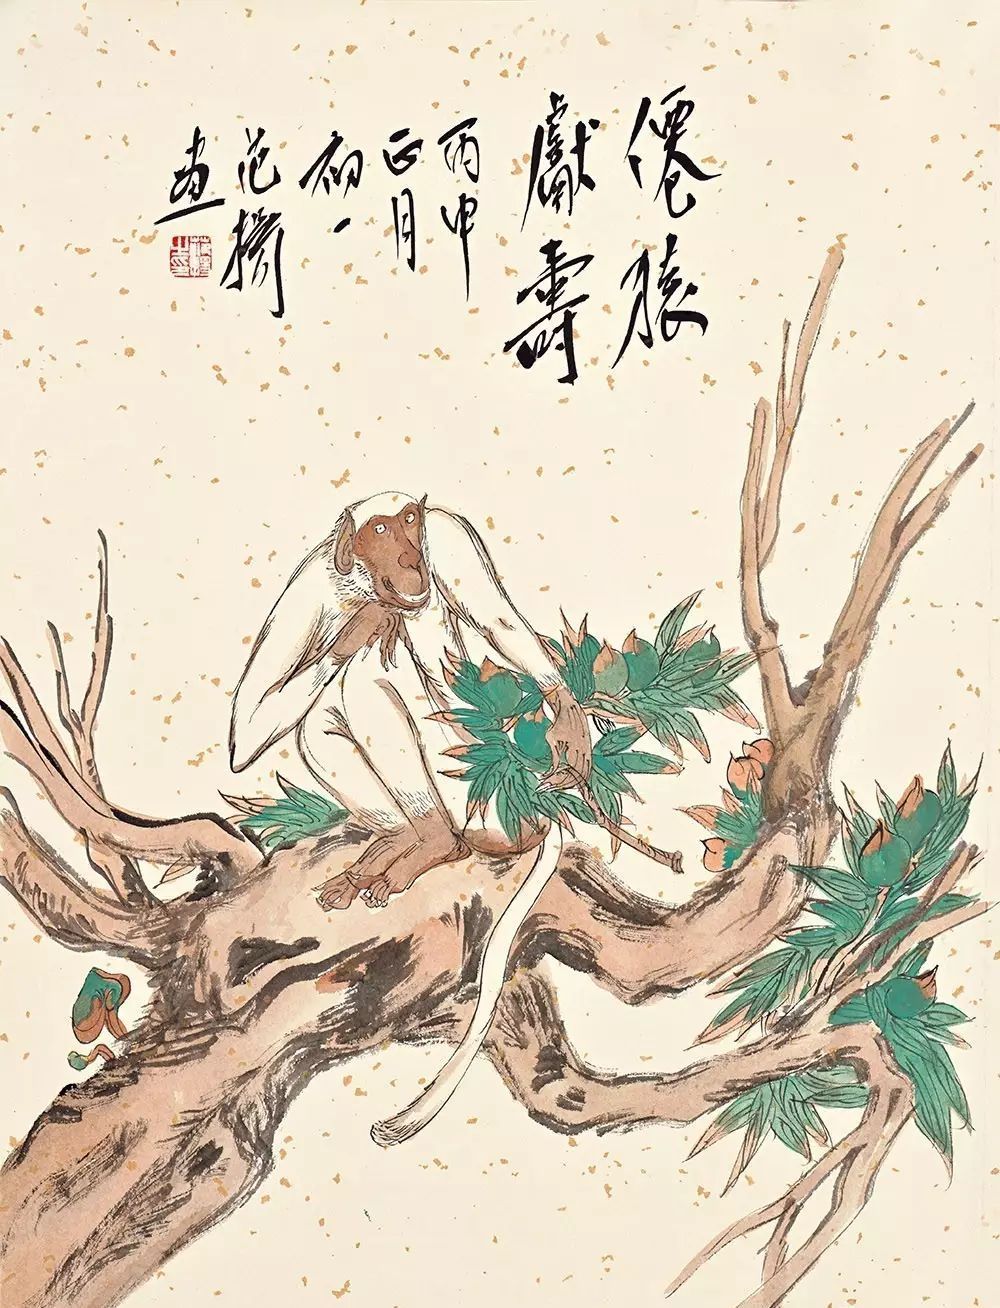 僊猿
獻壽
丙申
正月
初一
范
畫